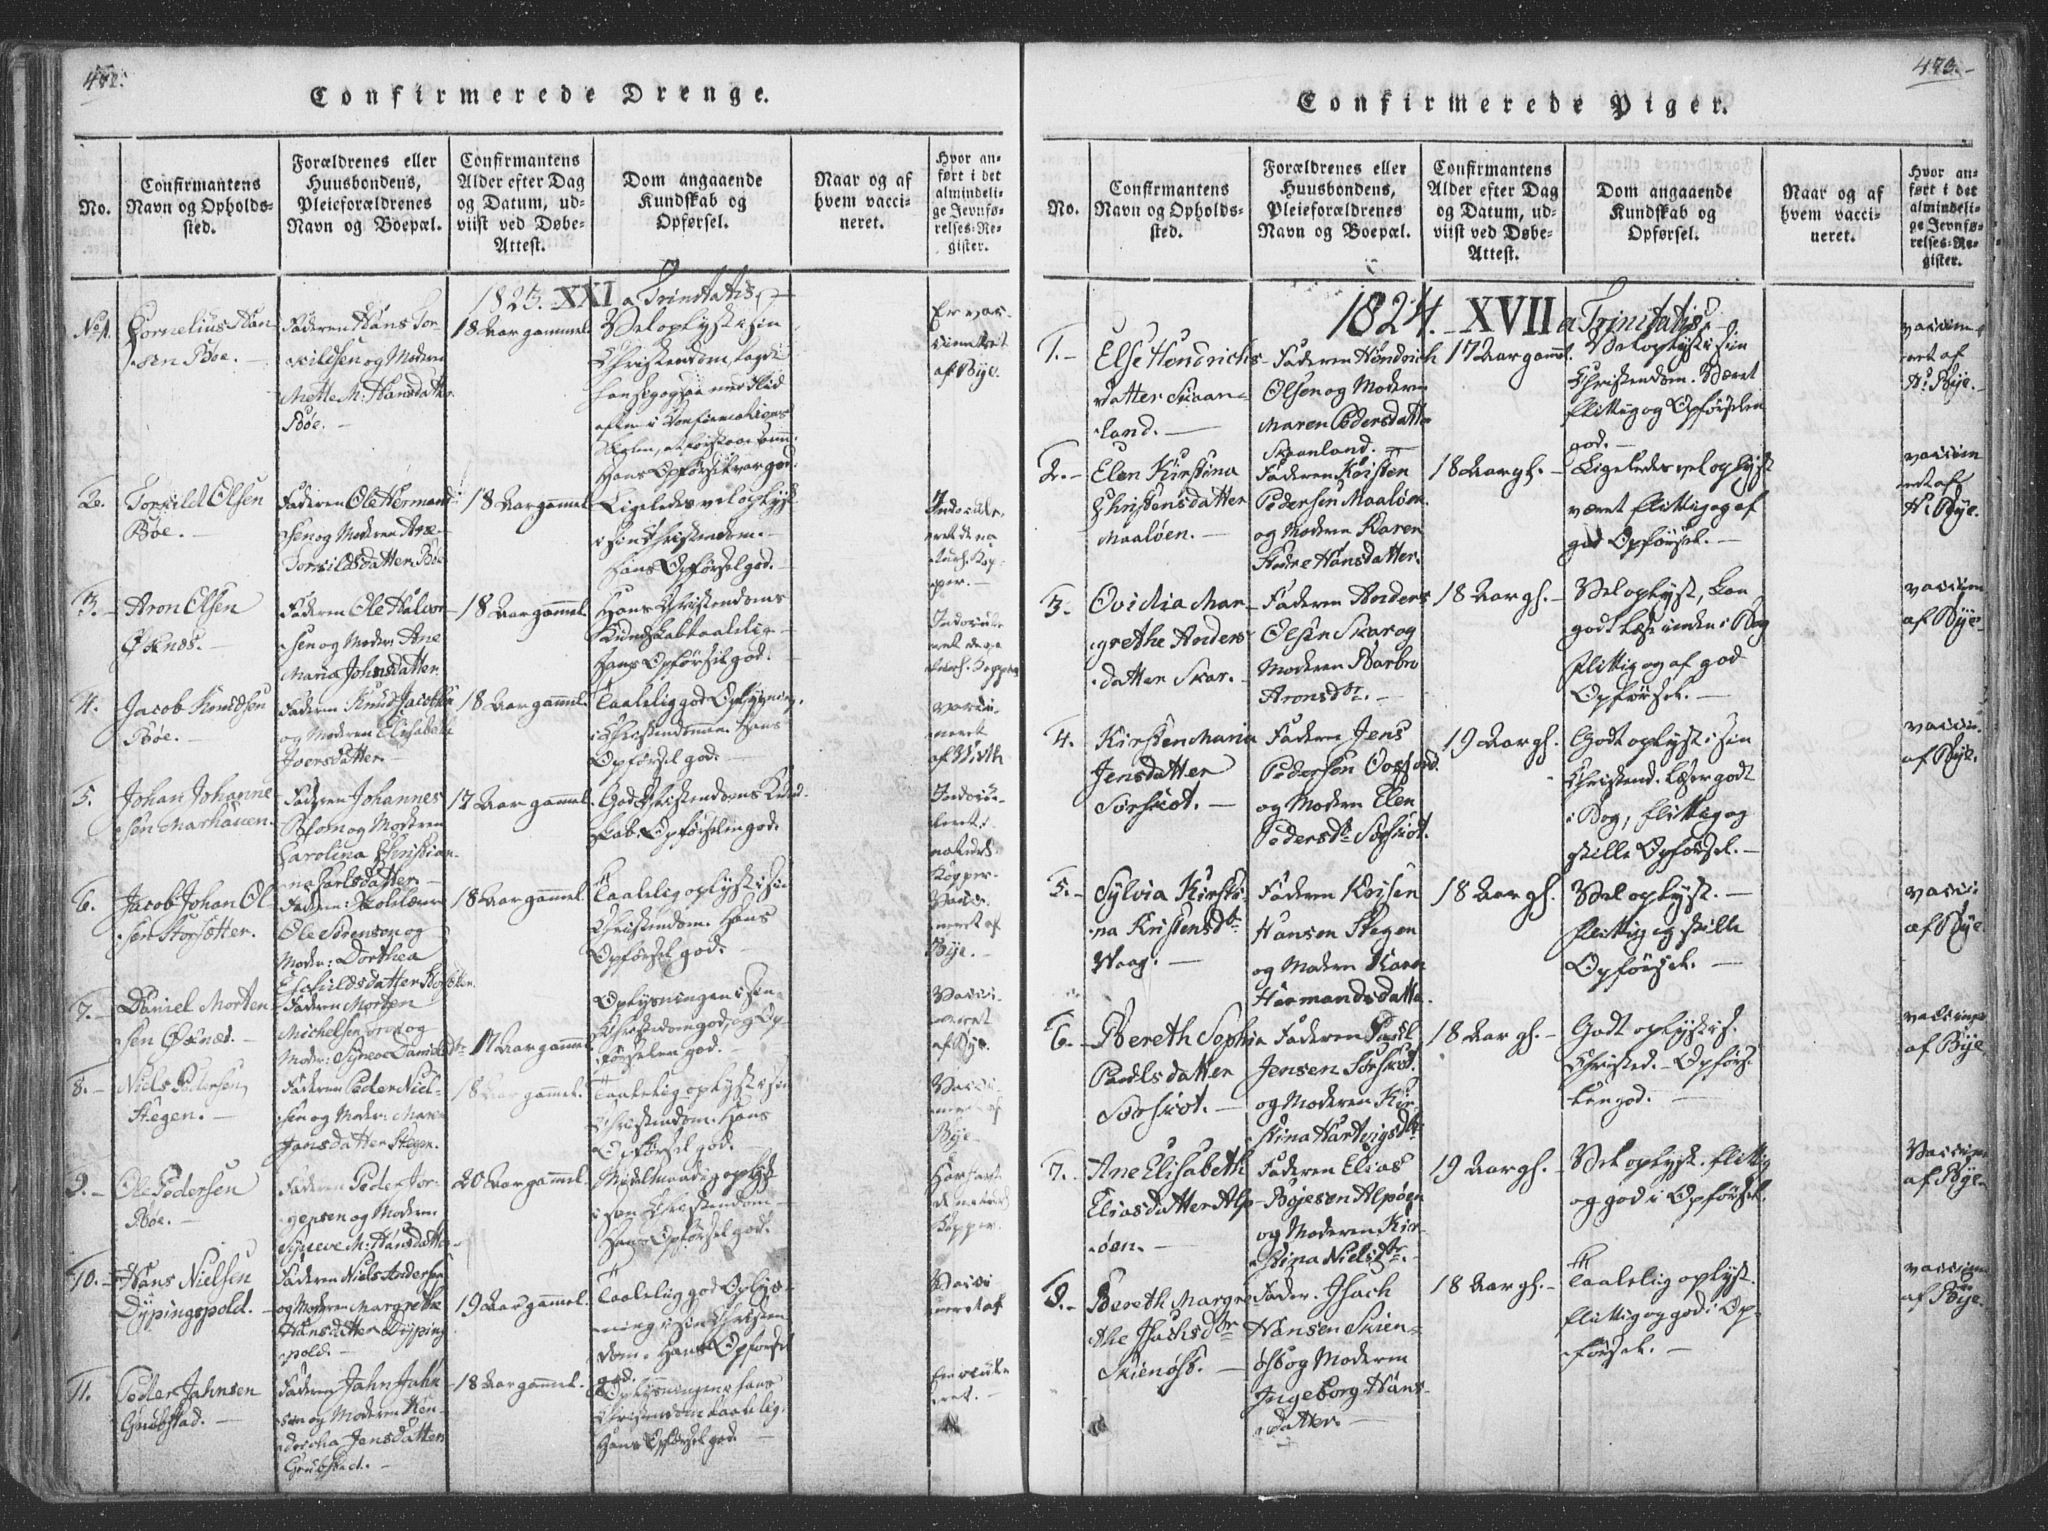 472.
Confirmerede Drenge.
No.
Confirmantens
Navn og Opholds-
sted.
Forældrenes eller
Huusbondens,
Pleieforældrenes
Navn og Boepæl.
Confirmantens
Alder efter Dag
og Datum, ud-
viist ved Døbe-
Attest.
Dom angaaende
Kundskab og
Opførsel.
Naar og af
hvem vacci-
neret.
Hvor an-
ført i det
almindeli-
ge Jevnfø-
relses-Re-
gister.
XXI a Trinitatis.
No 1.
Cornelius Han
sen Bøe.
Faderen Hans Tor-
kildsen og Moderen
Mette M: Hansdatter
Bøe.
18 Aar gammel.
Vel oplyst i sin
Christendom,
Hans Opførsel var god.
Er vac-
cineret
af Bye.
2.
Torkild Olsen
Bøe.
Faderen Ole Hermand-
sen og Moderen Ane
Torkildsdatter Bøe
18 Aar gammel
Ligeledes vel oplyst
i sin Christendom.
Hans Opførsel god.
3.
Aron Olsen
Øxnes.
Faderen Ole Halvor-
sen og Moder: Ane
Maria Johnsdatter.
18 Aar gammel.
Hans Christendoms
Kundskab taalelig
Hans Opførsel god.
4.
Jacob Knudsen
Bøe.
Faderen Knud Jacobsen
og Moderen Elisabeth
Iversdatter
18 Aar gammel.
Taalelig god Oplysning
i Christendommen. Hans
Opførsel god.
vacci-
neret
af
5.
Johan Johanne
sen Marhauen.
Faderen Johannes
Blom og Moderen
Carolina Christian-
ne Carlsdatter
17 Aar gammel.
God Christendoms Kund-
skab. Opførselen god.
6.
Jacob Johan Ol-
sen Storsetter.
Ole Sörensen og
Moder: Dorthea
18 Aar gammel.
Taalelig oplyst i sin
Christendom. Hans
Opførsel god.
Vacci-
neret af
Bye.
7.
Daniel Morten
sen Øxnes.
Faderen Morten
Michelsen og
Moder: Syneve Daniels Dtr
17 Aar gammel.
Oplysningen i sin
Christendom god, og Op-
førselen god.
Vacci-
neret
af Bye.
8.
Niels Pedersen
Stegen.
Faderen Peder Niel-
sen og Moder: Maren
Jansdatter Stegen.
18 Aar gammel.
Taalelig oplyst i sin
Christendom. Hans
Opførsel god.
Vacci-
neret af
Bye
9.
Ole Pedersen
Bøe.
Faderen Peder Jør-
gensen og Moderen
Syneve M: Hansdatter
20 Aar gammel.
Middelmaadig oplyst
i sin Christendom
Hans Opførsel god.
Har havt
de naturl:
Kopper.
10.
Hans Nielsen
Dypingspold.
Faderen Niels Andersen
og Moderen Margrethe
Hansdatter Dyping
spold.
19 Aar gammel.
Taalelig god Oplys-
ning i sin Christen
dom. Hans Opførsel
god.
Vacci
neret af
11.
Peder Jahnsen
Grubstad.
Faderen Jahn Jahn
sen og Moderen Ken-
dorcha Jensdatter
Grubstad.
18 Aar gammel.
Oplysningen i hans
Christendom taalelig.
Hans Opførsel god.
473.
Confirmerede Piger.
No.
Confirmantens
Navn og Opholds-
sted.
Forældrenes eller
Huusbondens,
Pleieforældrenes
Navn og Boepæl.
Confirmantens
Alder efter Dag
og Datum, ud-
viist ved Døbe-
Attest.
Dom angaaende
Kundskab og
Opførsel.
Naar og af
hvem vacci-
neret.
Hvor an-
ført i det
almindeli-
ge Jevnfø-
relses-Re-
gister.
1824. XVII a Trinitatis
1.
Else Hendrichs
datter Skaan-
land.
Faderen Hendrich
Olsen og Moderen
Maren Pedersdatter
Skaanland.
17 Aar gammel.
Vel oplyst i sin
Christendom. Været
flittig og Opførselen
god.
vaccine-
ret af
Hr Bye.
2.
Elen Kirstina
Christensdatter
Maaløen.
Faderen Kristen
Pedersen Maaløen.
og Moderen Karen
Hansdatter.
18 Aar gl.
Ligeledes vel oplyst
været flittig og af
god Opførsel.
vaccine
ret af
Hr Bye.
3.
Ovidia Mar-
grethe Anders
datter Skar.
Faderen Anders
Olsen Skar og
Moderen Barbro
Aronsdtr.
18 Aar gl.
Vel oplyst, kan
godt læse inden i Bog
flittig og af god
Opførsel.
vaccine
af Bye
4.
Kirsten Maria
Jensdatter
Sørskot.
Faderen Jens
Pedersen
og Moderen Elen
Pedersdtr Sørskot.
19 Aar gl.
Godt oplyst i sin
Christend. læser godt
i Bog, flittig og
stille Opførsel.
vaccine.
af Bye.
5.
Sylvia Kirsti-
na Kristensdtr
Vaag.
Faderen Kristen
Hansen Stegen
og Moderen Karen
Hermandsdatter.
18 Aar gl.
Vel oplyst.
flittig og stille
Opførsel.
vacci-
af Bye
6.
Bereth Sophia
Paulsdatter
Sørskot.
Faderen Paul
Jensen Sørskot.
og Moderen Kir-
stina Hartvigsdtr
18 Aar gl.
Godt oplyst i s.
Christed. Opførs-
len god.
vaccine
af Bye
7.
Ane Elisabeth
Eliasdatter Alp
øen.
Faderen Elias
Bojesen Alpøen
og Moderen Kir-
stina Nielsdtr.
19 Aar gl.
Vel oplyst. flittig
og god i Opførsel.
Vaccine
af Bye
9.
Bereth Margre
the Isachsdtr
Skienøsb.
Fader. Isach
Hansen Skien-
øsb og Moderen
Ingeborg Hans-
datter.
18 Aar gl.
Taalelig oplyst.
flittig og god i Op-
førsel.
vaccine
af Bye.